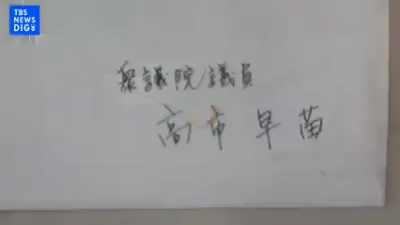 TBS
NEWS
DIG
衆議院議員
高市早苗